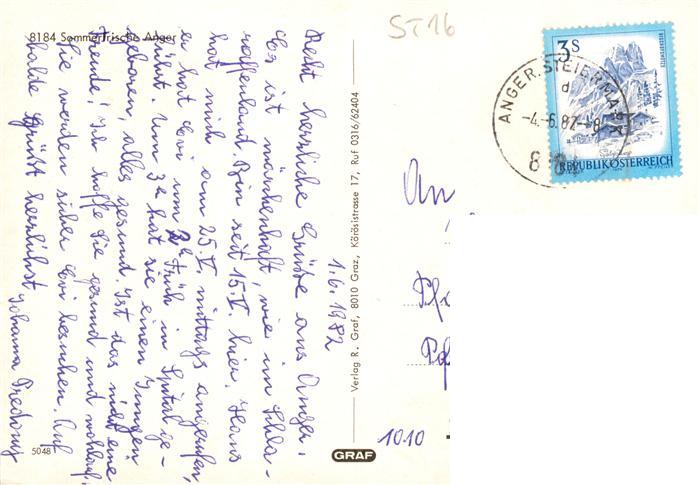 8184 Sommerfrische Anger
1.6.1982
Recht herzliche Grüße aus Anger.
Es ist märchenhaft, wie im Schla-
raffenland. Bin seit 15.V. hier. Hans
hat mich am 25.V. mittags angerufen,
er hat Evi um 2h Früh in Spital ge-
führt. Um 3h hat sie einen Jungen
geboren, alles gesund. Ist das nicht eine
Freude! Ich hoffe Sie gesund und wohlauf.
Sie werden sicher Evi besuchen. Auf
balde Grüßt herzlichst Johanna
5048
Verlag R. Graf, 8010 Graz, Körösistrasse 17, Ruf 0316/62404
GRAF
ST16
3S
REPUBLIK ÖSTERREICH
ANGER, STEIERMARK
d
-4.-6.82-8
An
1010